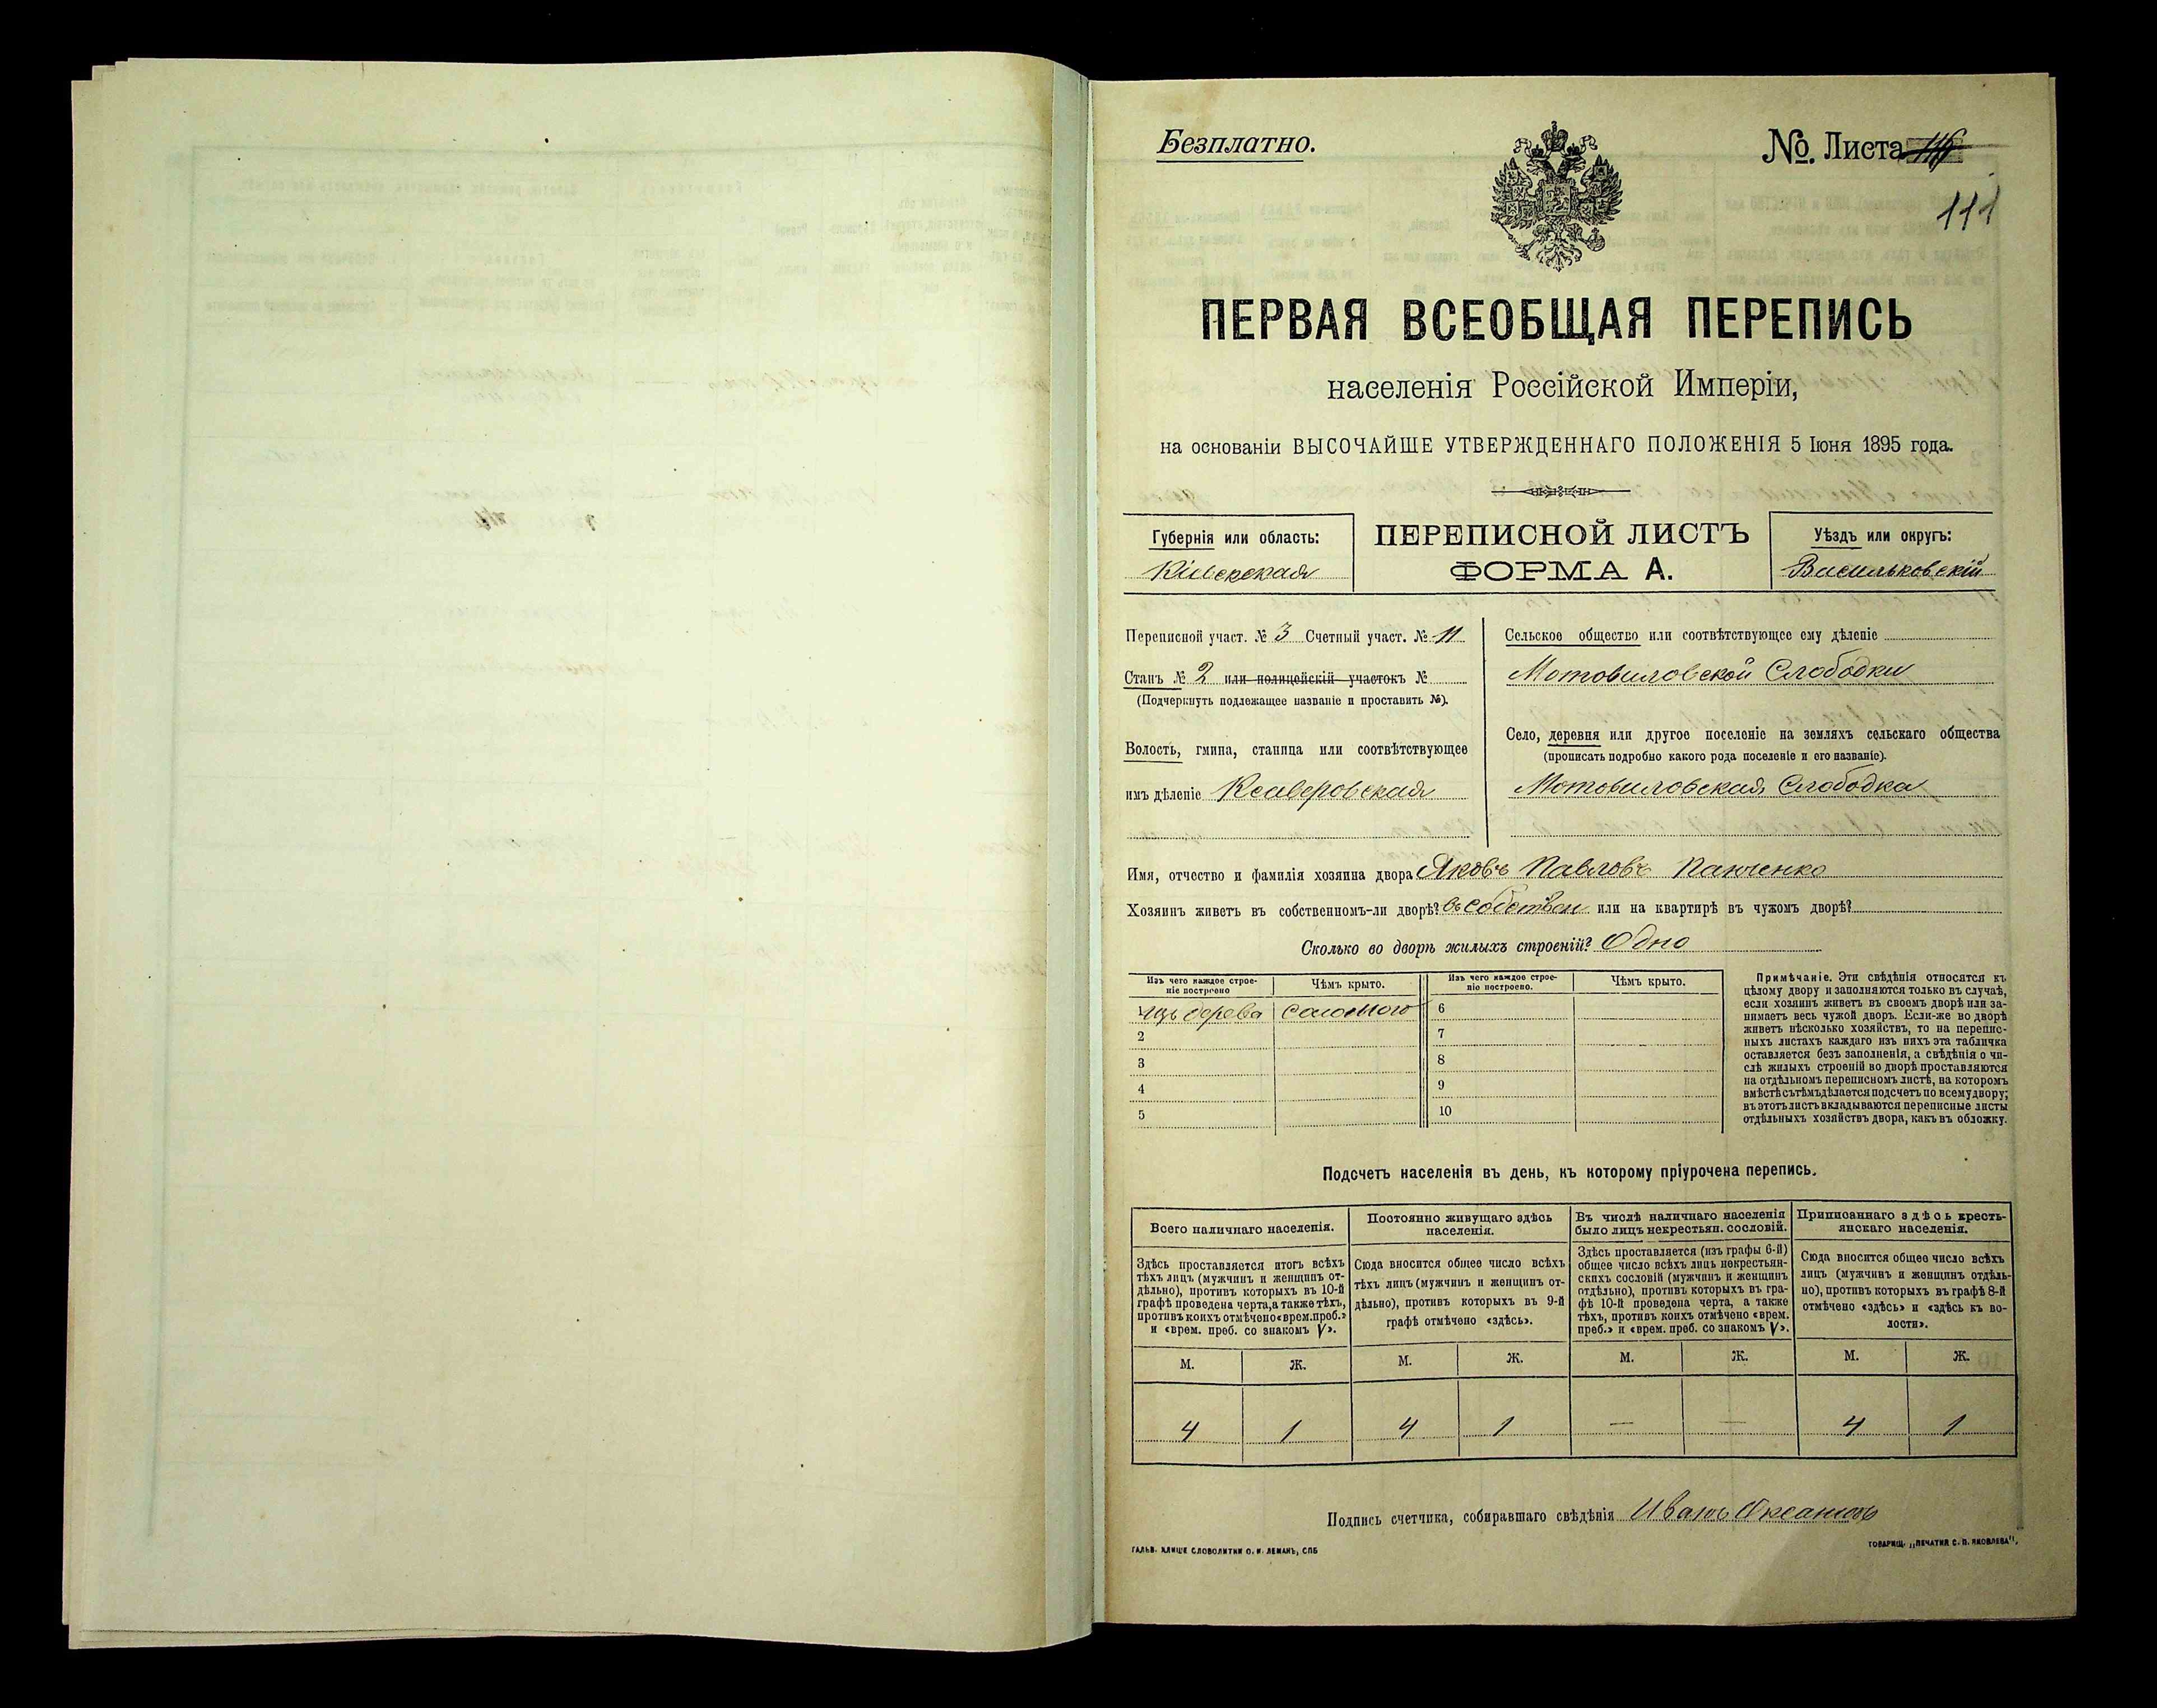 Безплатно.
№. Листа
111
ПЕРВАЯ ВСЕОБЩАЯ ПЕРЕПИСЬ
населенія Россійской Имперіи,
на основаніи ВЫСОЧАЙШЕ УТВЕРЖДЕННАГО ПОЛОЖЕНІЯ 5 Іюня 1895 года.
Губернія или область:
Кіевская
ПЕРЕПИСНОЙ ЛИСТЪ
ФОРМА А.
Уѣздъ или округъ:
Васильковскій
Переписной участ. № 3 Счетный участ. № 11
Станъ № 2 или полицейскій участокъ №
(Подчеркнуть подлежащее названіе и проставить №).
Волость, гмина, станица или соотвѣтствующее
имъ дѣленіе Ксаверовская
Сельское общество или соотвѣтствующее ему дѣленіе
Мотовиловской Слободки
Село, деревня или другое поселеніе на земляхъ сельскаго общества
(прописать подробно какого рода поселеніе и его названіе).
Мотовиловская Слободка
Имя, отчество и фамилія хозяина двора Яковъ Павловъ Панченко
Хозяинъ живетъ въ собственномъ-ли дворѣ? въ собствен или на квартирѣ въ чужомъ дворѣ?
Сколько во дворѣ жилыхъ строеній? Одно
Изъ чего каждое строе-
ніе построено
Чѣмъ крыто.
Изъ чего каждое строе-
ніе построено.
Чѣмъ крыто.
1 изъ дерева соломою 6
2 7
3 8
4 9
5 10
Примѣчаніе. Эти свѣдѣнія относятся къ
цѣлому двору и заполняются только въ случаѣ,
если хозяинъ живетъ въ своемъ дворѣ или за-
нимаетъ весь чужой дворъ. Если-же во дворѣ
живетъ нѣсколько хозяйствъ, то на перепис-
ныхъ листахъ каждаго изъ нихъ эта табличка
оставляется безъ заполненія, а свѣдѣнія о чи-
слѣ жилыхъ строеній во дворѣ проставляются
на отдѣльномъ переписномъ листѣ, на которомъ
вмѣстѣ съ тѣмъ дѣлается подсчетъ по всему двору;
въ этотъ листъ вкладываются переписные листы
отдѣльныхъ хозяйствъ двора, какъ въ обложку.
Подсчетъ населенія въ день, къ которому пріурочена перепись.
Всего наличнаго населенія.
Здѣсь проставляется итогъ всѣхъ
тѣхъ лицъ (мужчинъ и женщинъ от-
дѣльно), противъ которыхъ въ 10-й
графѣ проведена черта, а также тѣхъ,
противъ коихъ отмѣчено «врем. преб.»
и «врем. преб. со знакомъ V».
Постоянно живущаго здѣсь
населенія.
Сюда вносится общее число всѣхъ
тѣхъ лицъ (мужчинъ и женщинъ от-
дѣльно), противъ которыхъ въ 9-й
графѣ отмѣчено «здѣсь».
Въ числѣ наличнаго населенія
было лицъ некрестьян. сословій.
Здѣсь проставляется (изъ графы 6-й)
общее число всѣхъ лицъ некрестьян-
скихъ сословій (мужчинъ и женщинъ
отдѣльно), противъ которыхъ въ гра-
фѣ 10-й проведена черта, а также
тѣхъ, противъ коихъ отмѣчено «врем.
преб.» и «врем. преб. со знакомъ V».
Приписаннаго здѣсь кресть-
янскаго населенія.
Сюда вносится общее число всѣхъ
лицъ (мужчинъ и женщинъ отдѣль-
но), противъ которыхъ въ графѣ 8-й
отмѣчено «здѣсь» и «здѣсь къ во-
лости».
М. Ж. М. Ж. М. Ж. М. Ж.
4 1 4 1 — — 4 1
Подпись счетчика, собиравшаго свѣдѣнія Иванъ
ГАЛЬВ. КЛИШЕ СЛОВОЛИТНИ О. И. ЛЕМАНЪ, СПБ
ТОВАРИЩ. „ПЕЧАТНЯ С. П. ЯКОВЛЕВА".